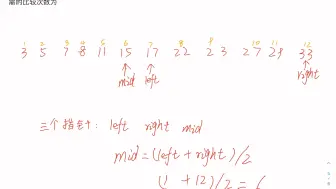 需的比较次数为
1 2 3 4 5 6 7 8 9 10 11 12
3 5 7 8 11 15 17 22 23 27 29 33
mid left right
三个指针: left right mid
mid=(left+right)/2
(1 +12)/2=6